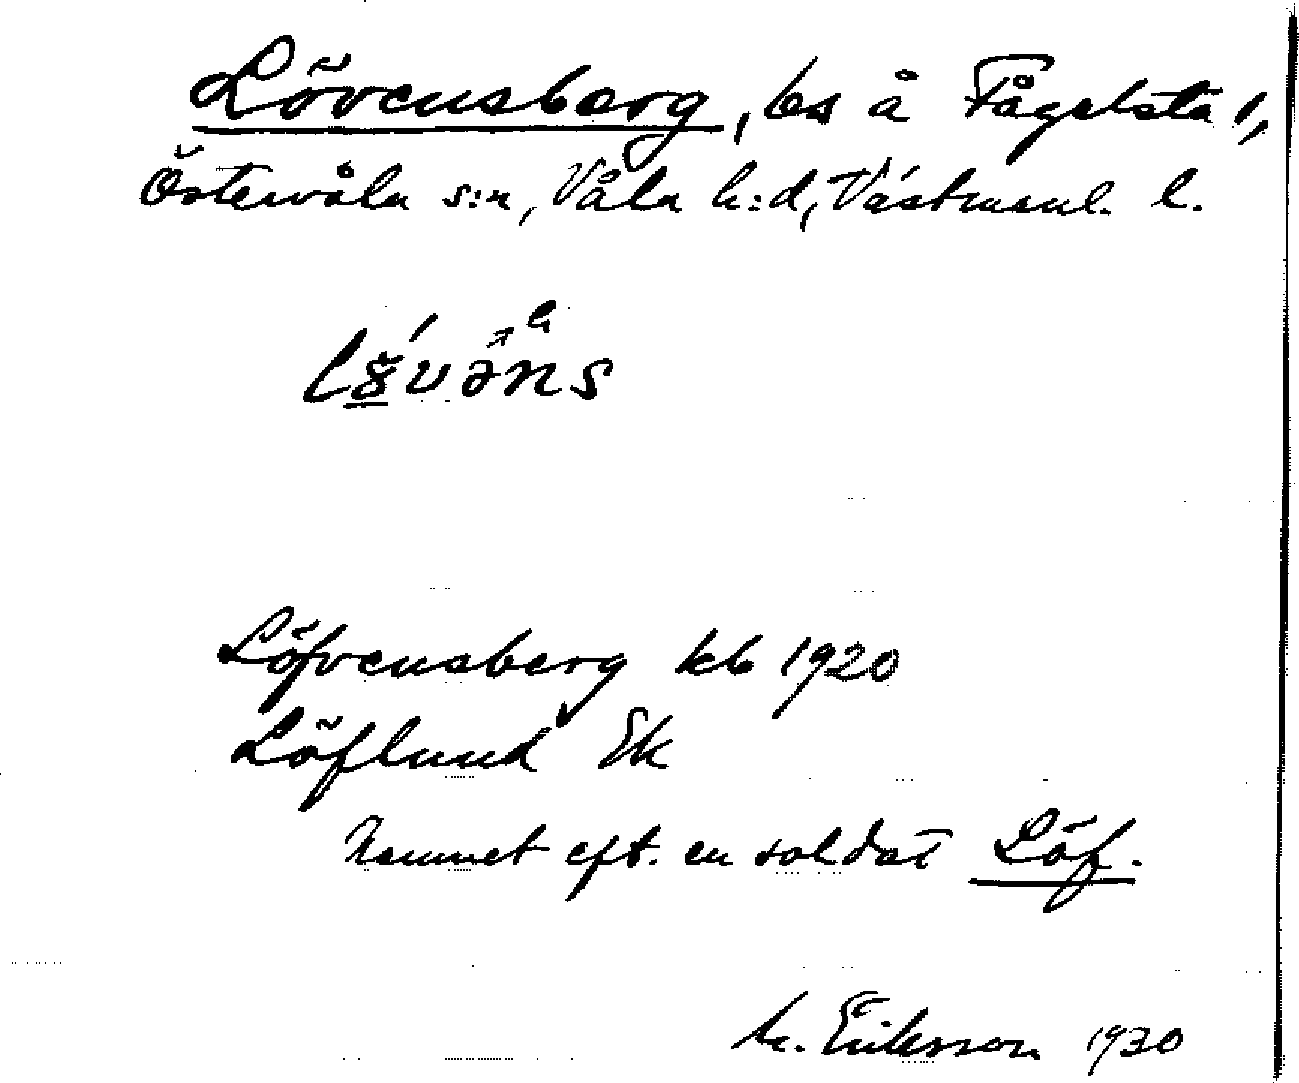 Lövensberg, bs å Fågelsta 1,
Östervåla s:n, Våla h:d, Västmanl. l.
Löfvensberg kb 1920
Löflund Ek
Namnet eft. en soldat Löf.
M. Eriksson 1930